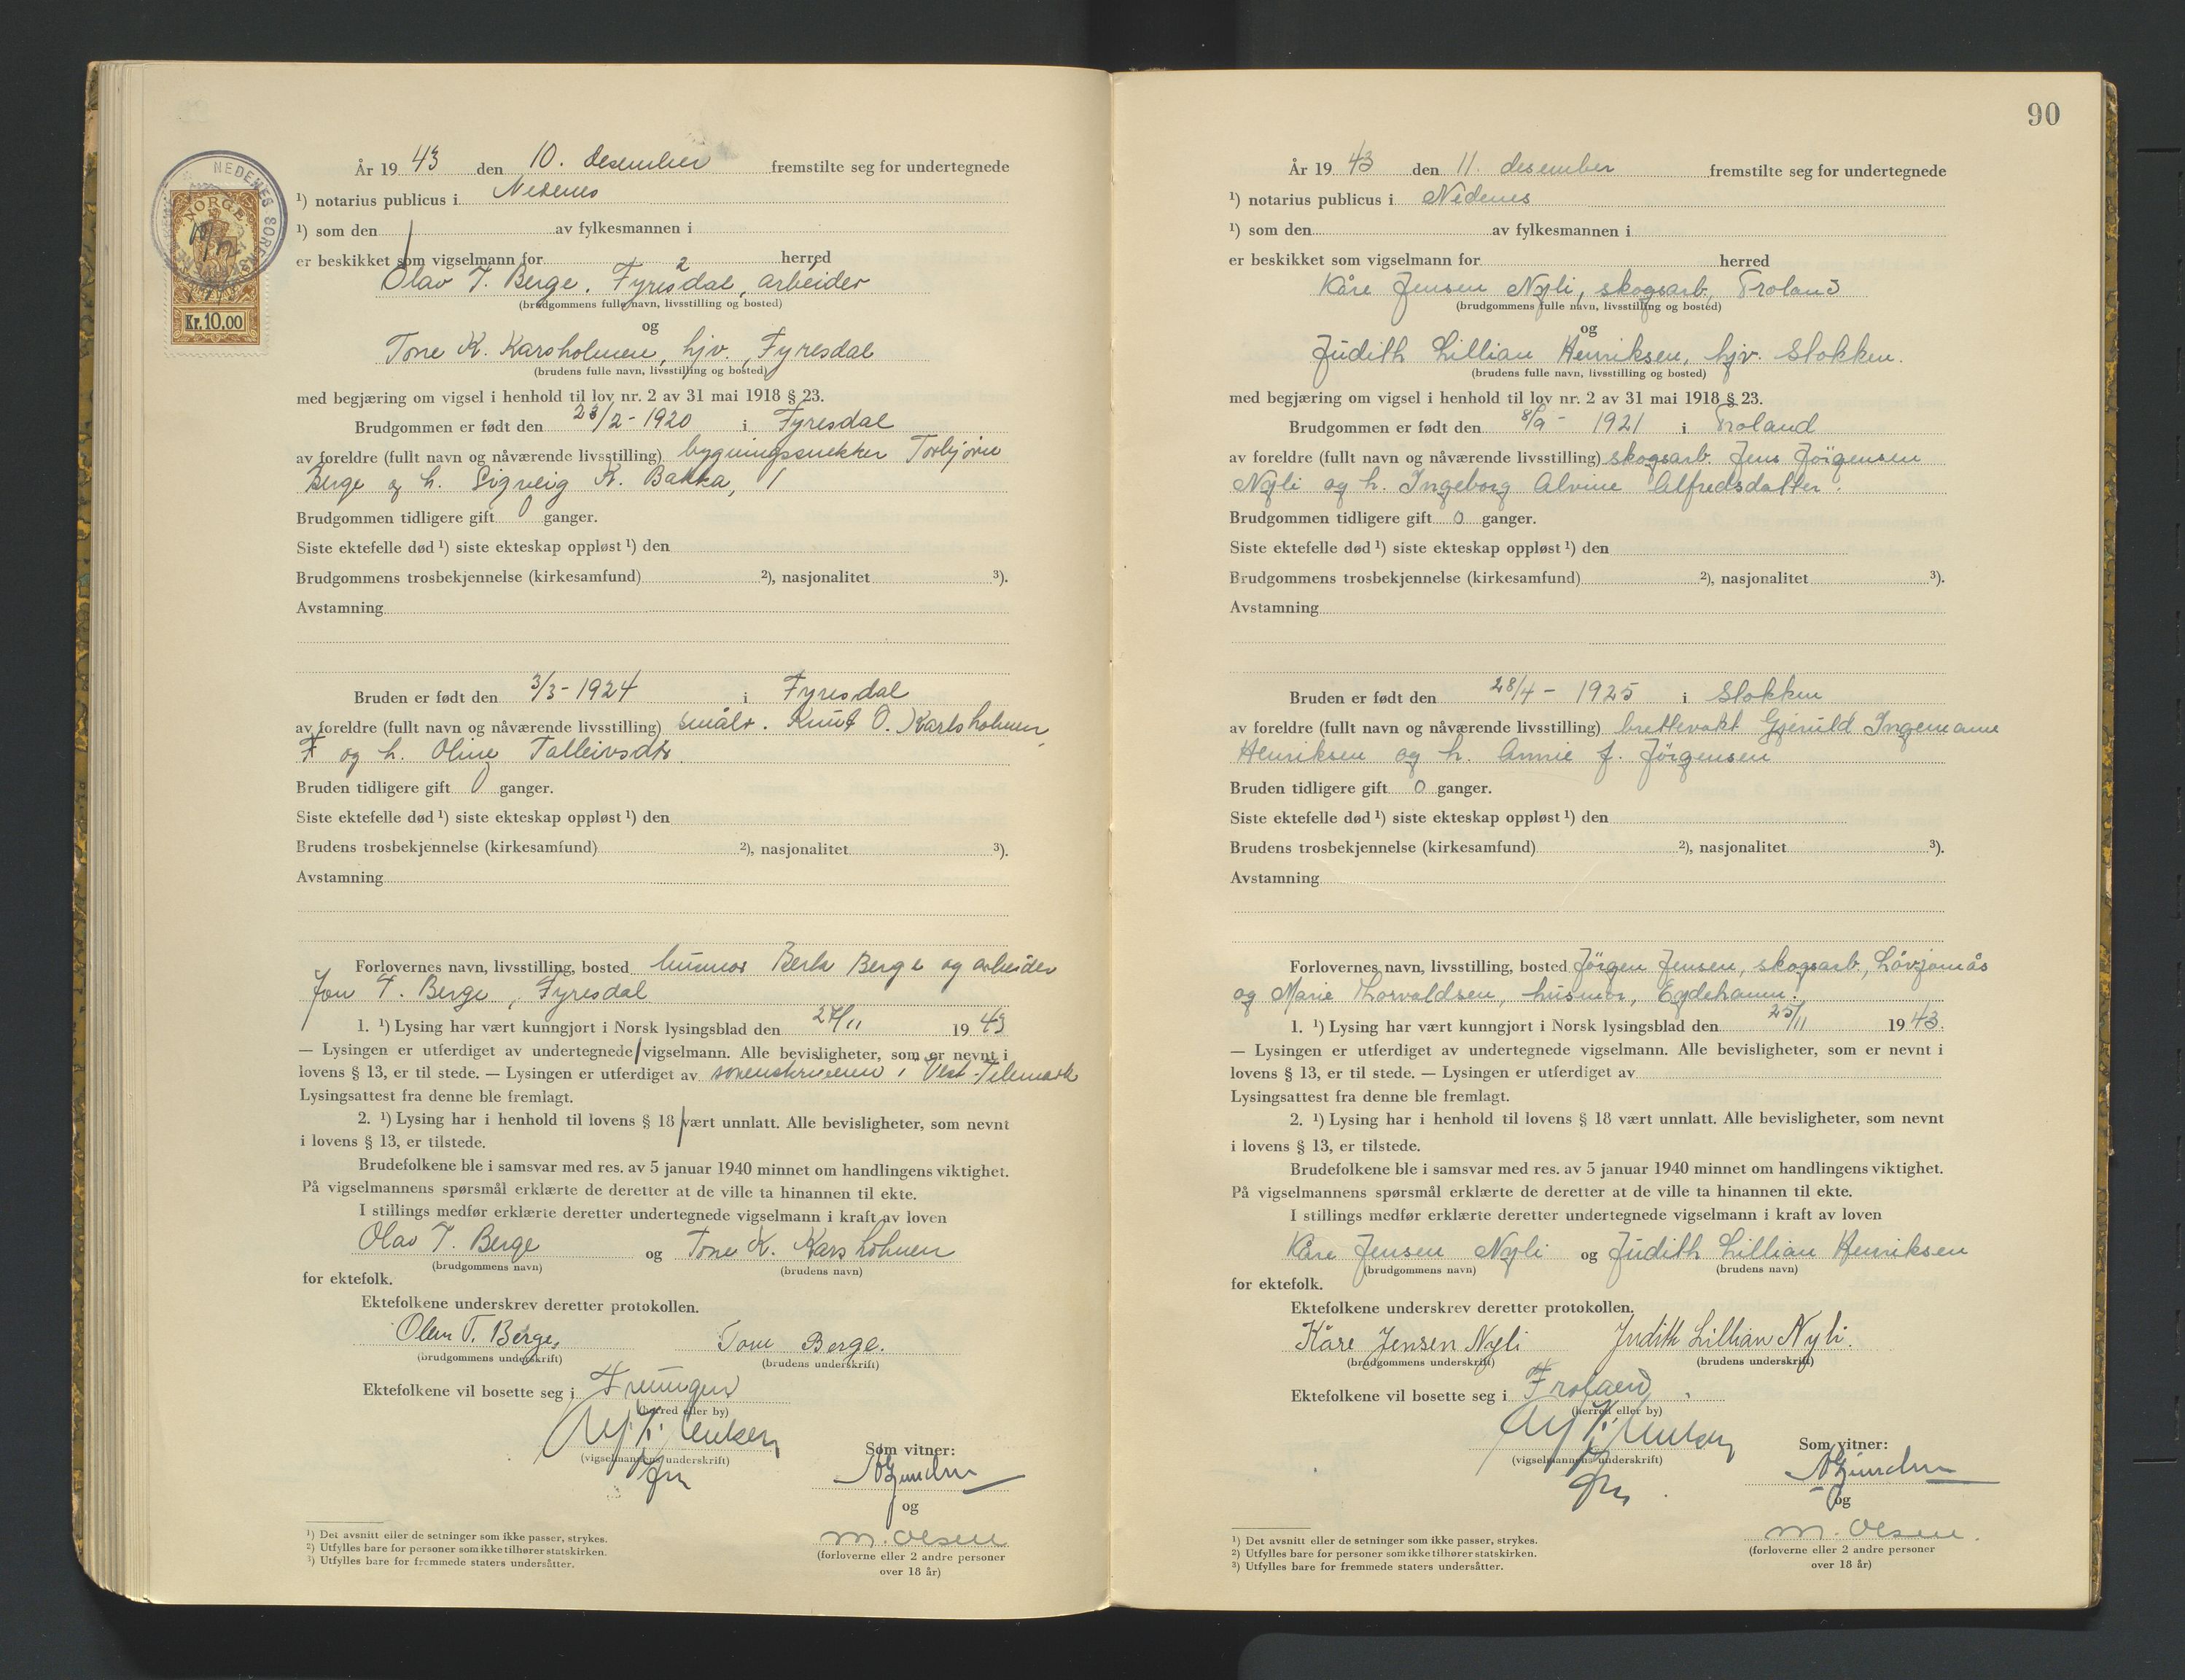 År 1943 den 10. desember fremstilte seg for undertegnede
¹) notarius publicus i Nedenes
¹) som den av fylkesmannen i
er beskikket som vigselmann for herred
Olav T. Berge, Fyresdal, arbeider
(brudgommens fulle navn, livsstilling og bosted)
og
Tone K. Karsholmen, hjv., Fyresdal
(brudens fulle navn, livsstilling og bosted)
med begjæring om vigsel i henhold til lov nr. 2 av 31 mai 1918 § 23.
Brudgommen er født den 23/2-1920 i Fyresdal
av foreldre (fullt navn og nåværende livsstilling) bygningssnekker Torbjørn
Berge og h. Sigveig K. Bakka,
Brudgommen tidligere gift 0 ganger.
Siste ektefelle død ¹) siste ekteskap oppløst ¹) den
Brudgommens trosbekjennelse (kirkesamfund) ²), nasjonalitet ³).
Avstamning
Bruden er født den 3/3-1924 i Fyresdal
av foreldre (fullt navn og nåværende livsstilling) småbr. Knut O. Karlsholmen,
F og h. Oline Talleivsdtr.
Bruden tidligere gift 0 ganger.
Siste ektefelle død ¹) siste ekteskap oppløst ¹) den
Brudens trosbekjennelse (kirkesamfund) ²), nasjonalitet ³).
Avstamning
Forlovernes navn, livsstilling, bosted husmor Berta Berge og arbeider
Jon T. Berge, Fyresdal
1. ¹) Lysing har vært kunngjort i Norsk lysingsblad den 27/11 1943
— Lysingen er utferdiget av undertegnede vigselmann. Alle bevisligheter, som er nevnt i
lovens § 13, er til stede. — Lysingen er utferdiget av sorenskriveren i Vest-Telemark
Lysingsattest fra denne ble fremlagt.
2. ¹) Lysing har i henhold til lovens § 18 vært unnlatt. Alle bevisligheter, som nevnt
i lovens § 13, er tilstede.
Brudefolkene ble i samsvar med res. av 5 januar 1940 minnet om handlingens viktighet.
På vigselmannens spørsmål erklærte de deretter at de ville ta hinannen til ekte.
I stillings medfør erklærte deretter undertegnede vigselmann i kraft av loven
Olav T. Berge og Tone K. Karsholmen
(brudgommens navn) (brudens navn)
for ektefolk.
Ektefolkene underskrev deretter protokollen.
Olav T. Berge, Tone Berge.
(brudgommens underskrift) (brudens underskrift)
Ektefolkene vil bosette seg i Treungen
(herred eller by)
(vigselmannens underskrift)
Som vitner:
og
M. Olsen
(forloverne eller 2 andre personer
over 18 år)
¹) Det avsnitt eller de setninger som ikke passer, strykes.
²) Utfylles bare for personer som ikke tilhører statskirken.
³) Utfylles bare for fremmede staters undersåtter.
NORGE
Kr. 10.00
NEDENES SOREN
90
År 1943 den 11. desember fremstilte seg for undertegnede
¹) notarius publicus i Nedenes
¹) som den av fylkesmannen i
er beskikket som vigselmann for herred
Kåre Jensen Nyli, skogsarb, Froland
(brudgommens fulle navn, livsstilling og bosted)
og
Judith Lillian Henriksen, hjv. Stokken.
(brudens fulle navn, livsstilling og bosted)
med begjæring om vigsel i henhold til lov nr. 2 av 31 mai 1918 § 23.
Brudgommen er født den 8/9- 1921 i Froland
av foreldre (fullt navn og nåværende livsstilling) skogsarb. Jens Jörgensen
Nyli og h. Ingeborg Alvine Alfredsdatter.
Brudgommen tidligere gift 0 ganger.
Siste ektefelle død ¹) siste ekteskap oppløst ¹) den
Brudgommens trosbekjennelse (kirkesamfund) ²), nasjonalitet ³).
Avstamning
Bruden er født den 28/4- 1925 i Stokken
av foreldre (fullt navn og nåværende livsstilling) Gjeruld Ingemann
Henriksen og h. Annie f. Jörgensen
Bruden tidligere gift 0 ganger.
Siste ektefelle død ¹) siste ekteskap oppløst ¹) den
Brudens trosbekjennelse (kirkesamfund) ²), nasjonalitet ³).
Avstamning
Forlovernes navn, livsstilling, bosted Jörgen Jensen, skogsarb,
og Marie Thorvaldsen, husmor, Eydehamn.
1. ¹) Lysing har vært kunngjort i Norsk lysingsblad den 25/11 1943.
— Lysingen er utferdiget av undertegnede vigselmann. Alle bevisligheter, som er nevnt i
lovens § 13, er til stede. — Lysingen er utferdiget av
Lysingsattest fra denne ble fremlagt.
2. ¹) Lysing har i henhold til lovens § 18 vært unnlatt. Alle bevisligheter, som nevnt
i lovens § 13, er tilstede.
Brudefolkene ble i samsvar med res. av 5 januar 1940 minnet om handlingens viktighet.
På vigselmannens spørsmål erklærte de deretter at de ville ta hinannen til ekte.
I stillings medfør erklærte deretter undertegnede vigselmann i kraft av loven
Kåre Jensen Nyli og Judith Lillian Henriksen
(brudgommens navn) (brudens navn)
for ektefolk.
Ektefolkene underskrev deretter protokollen.
Kåre Jensen Nyli Judith Lillian Nyli.
(brudgommens underskrift) (brudens underskrift)
Ektefolkene vil bosette seg i Froland
(herred eller by)
(vigselmannens underskrift)
Som vitner:
og
M. Olsen.
(forloverne eller 2 andre personer
over 18 år)
¹) Det avsnitt eller de setninger som ikke passer, strykes.
²) Utfylles bare for personer som ikke tilhører statskirken.
³) Utfylles bare for fremmede staters undersåtter.